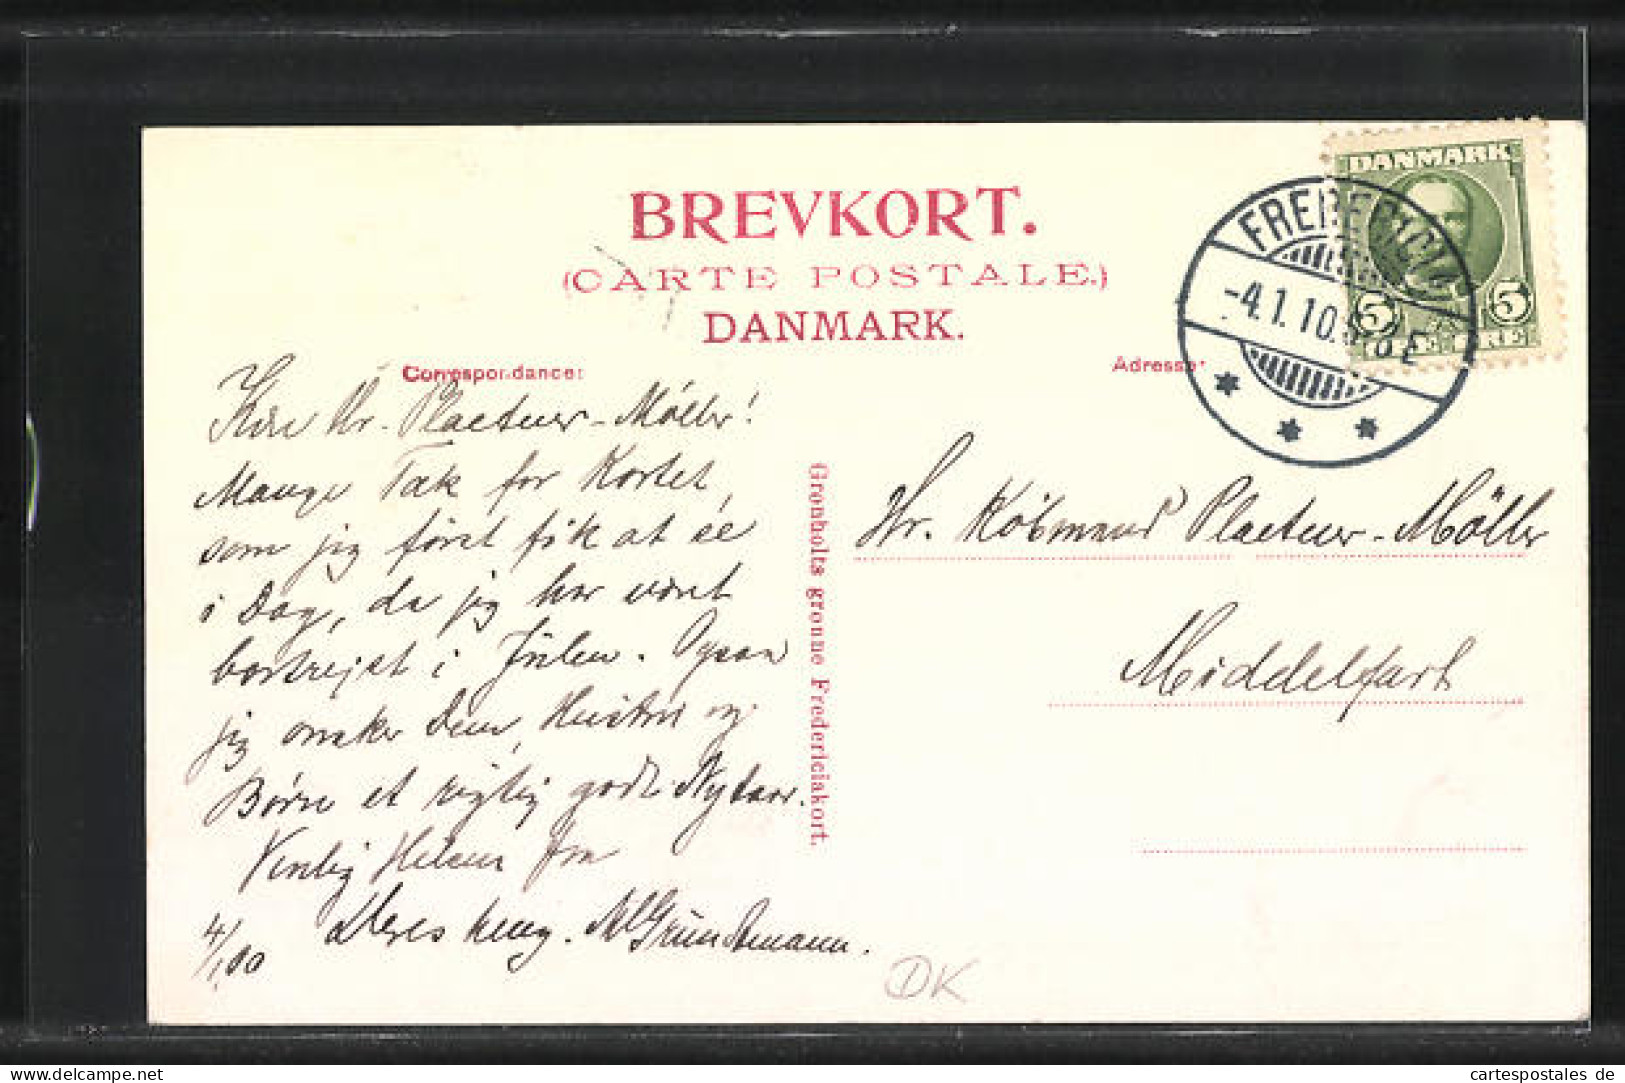 BREVKORT.
(CARTE POSTALE.)
DANMARK.
Correspondance:
Adresse:
DANMARK
5 5
ØRE
FREDERICIA
-4.1.10. E
Kære Hr. Plaetner-Möller!
Mange Tak for Kortet,
som jeg først fik at se
i Dag, da jeg har været
bortrejst i Julen. Ogsaa
jeg ønsker Dem, Hustru og
Børn et rigtig godt Nytaar.
Venlig Hilsen fra
Deres heng. Grundtmann.
4/1 10
Gronholts gronne Fredericiakort.
Hr. Købmand Plaetner-Möller
Middelfart
DK
cartespostales de